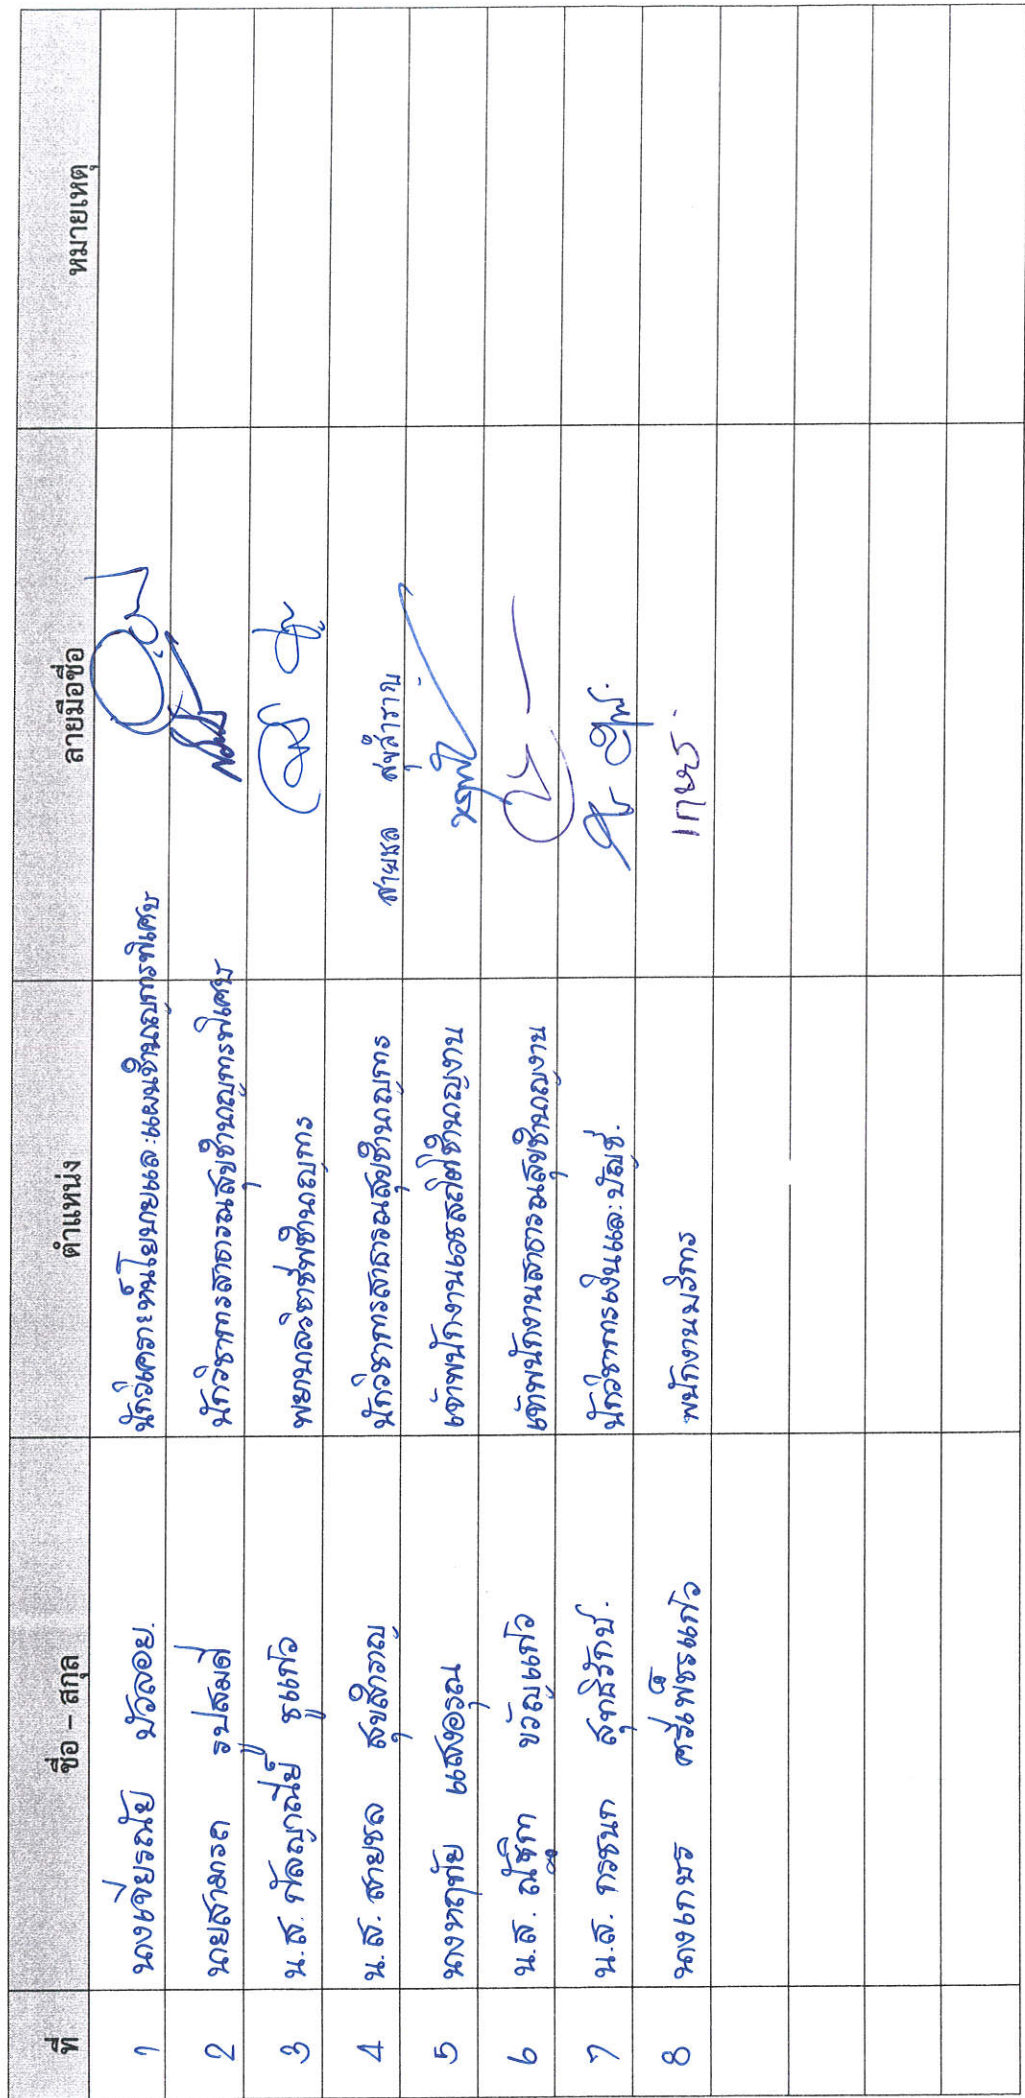 ที่ ชื่อ – สกุล ตำแหน่ง ลายมือชื่อ หมายเหตุ
1 นางเจียรณัย บัวลอย. นักวิเคราะห์นโยบายและแผนชำนาญการพิเศษ
2 นายสามารถ รูปสมดี นักวิชาการสาธารณสุขชำนาญการพิเศษ
3 น.ส. กัลญาณีย์ ชูแก้ว พยาบาลวิชาชีพชำนาญการ
4 น.ส. สายชล สุขสำราญ นักวิชาการสาธารณสุขชำนาญการ สายชล สุขสำราญ
5 นางหฤทัย แสงอรุณ เจ้าพนักงานเวชสถิติชำนาญงาน หฤทัย
6 น.ส. ณัฐิกา ขวัญแก้ว เจ้าพนักงานสาธารณสุขชำนาญงาน
7 น.ส. กรชนก สุทธิรักษ์. นักวิชาการเงินและบัญชี.
8 นางเกษร ศรีเพ็ชรแก้ว พนักงานบริการ เกษร.